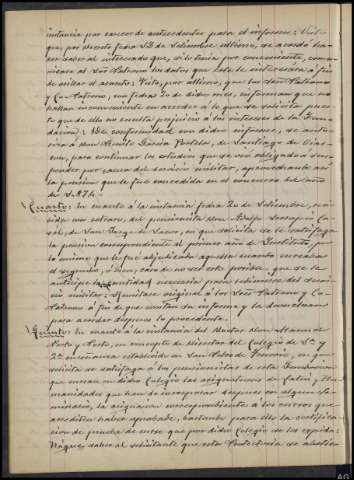 instancia por carecer de antecedentes para el informe: Visto
que, por decreto fecha 23 de Setiembre ultimo, se acordó ha-
cer saber al interesado que, si lo tenia por conveniente, comu-
nicase al Sor Patrono los datos que este le interesara a fin
de emitir el asunto: Visto, por ultimo, que los Sres Patrono
y Co-Patrono, con fecha 20 de dicho mes, informan que no
hallan inconveniente en acceder a lo que se solicita pues-
to que de ello no resulta perjuicio a los intereses de la Fun-
dacion: De conformidad con dicho informe, se auto-
riza a Don Benito Garcia Portela, de Santiago de
para continuar los estudios que se vió obligado a sus-
pender por causa del servicio militar, aprovechando asi
la pension que le fue concedida en el concurso del año
de 1.874.
Cuarto: En cuanto á la instancia fecha 20 de Setiembre,
del pensionista Don Adolfo
de San Jorge de Sacos, en que solicita se le satisfaga
la pension correspondiente al primer año de Instituto, por
lo mismo que le fue adjudicada aquella cuando cursaba
el segundo; ó bien, caso de no ser esto posible, que se le
anticipe la cantidad necesaria para redimirse del servi-
cio militar: Remitase original á los Sres Patrono y Co-
Patrono á fin de que emitan su informe y la devuelvan
para acordar despues lo procedente.
Quinto: En cuanto á la instancia del Doctor Don Manuel
Porto y Porto, en concepto de Director del Colegio de 1ª y
2ª enseñanza establecido en San Pedro de en que
solicita se satisfaga á los pensionistas de esta Fundacion
que cursan en dicho Colegio las asignaturas de Latin y Hu-
manidades que han de incorporar despues en algun Se-
minario, la asignacion correspondiente á los cursos que
acrediten haber aprobado, bastando para ello la certifica-
cion de prueba de curso que por dicho Colegio se les expida:
Hágase saber al solicitante que esta Protectoria se abstie-